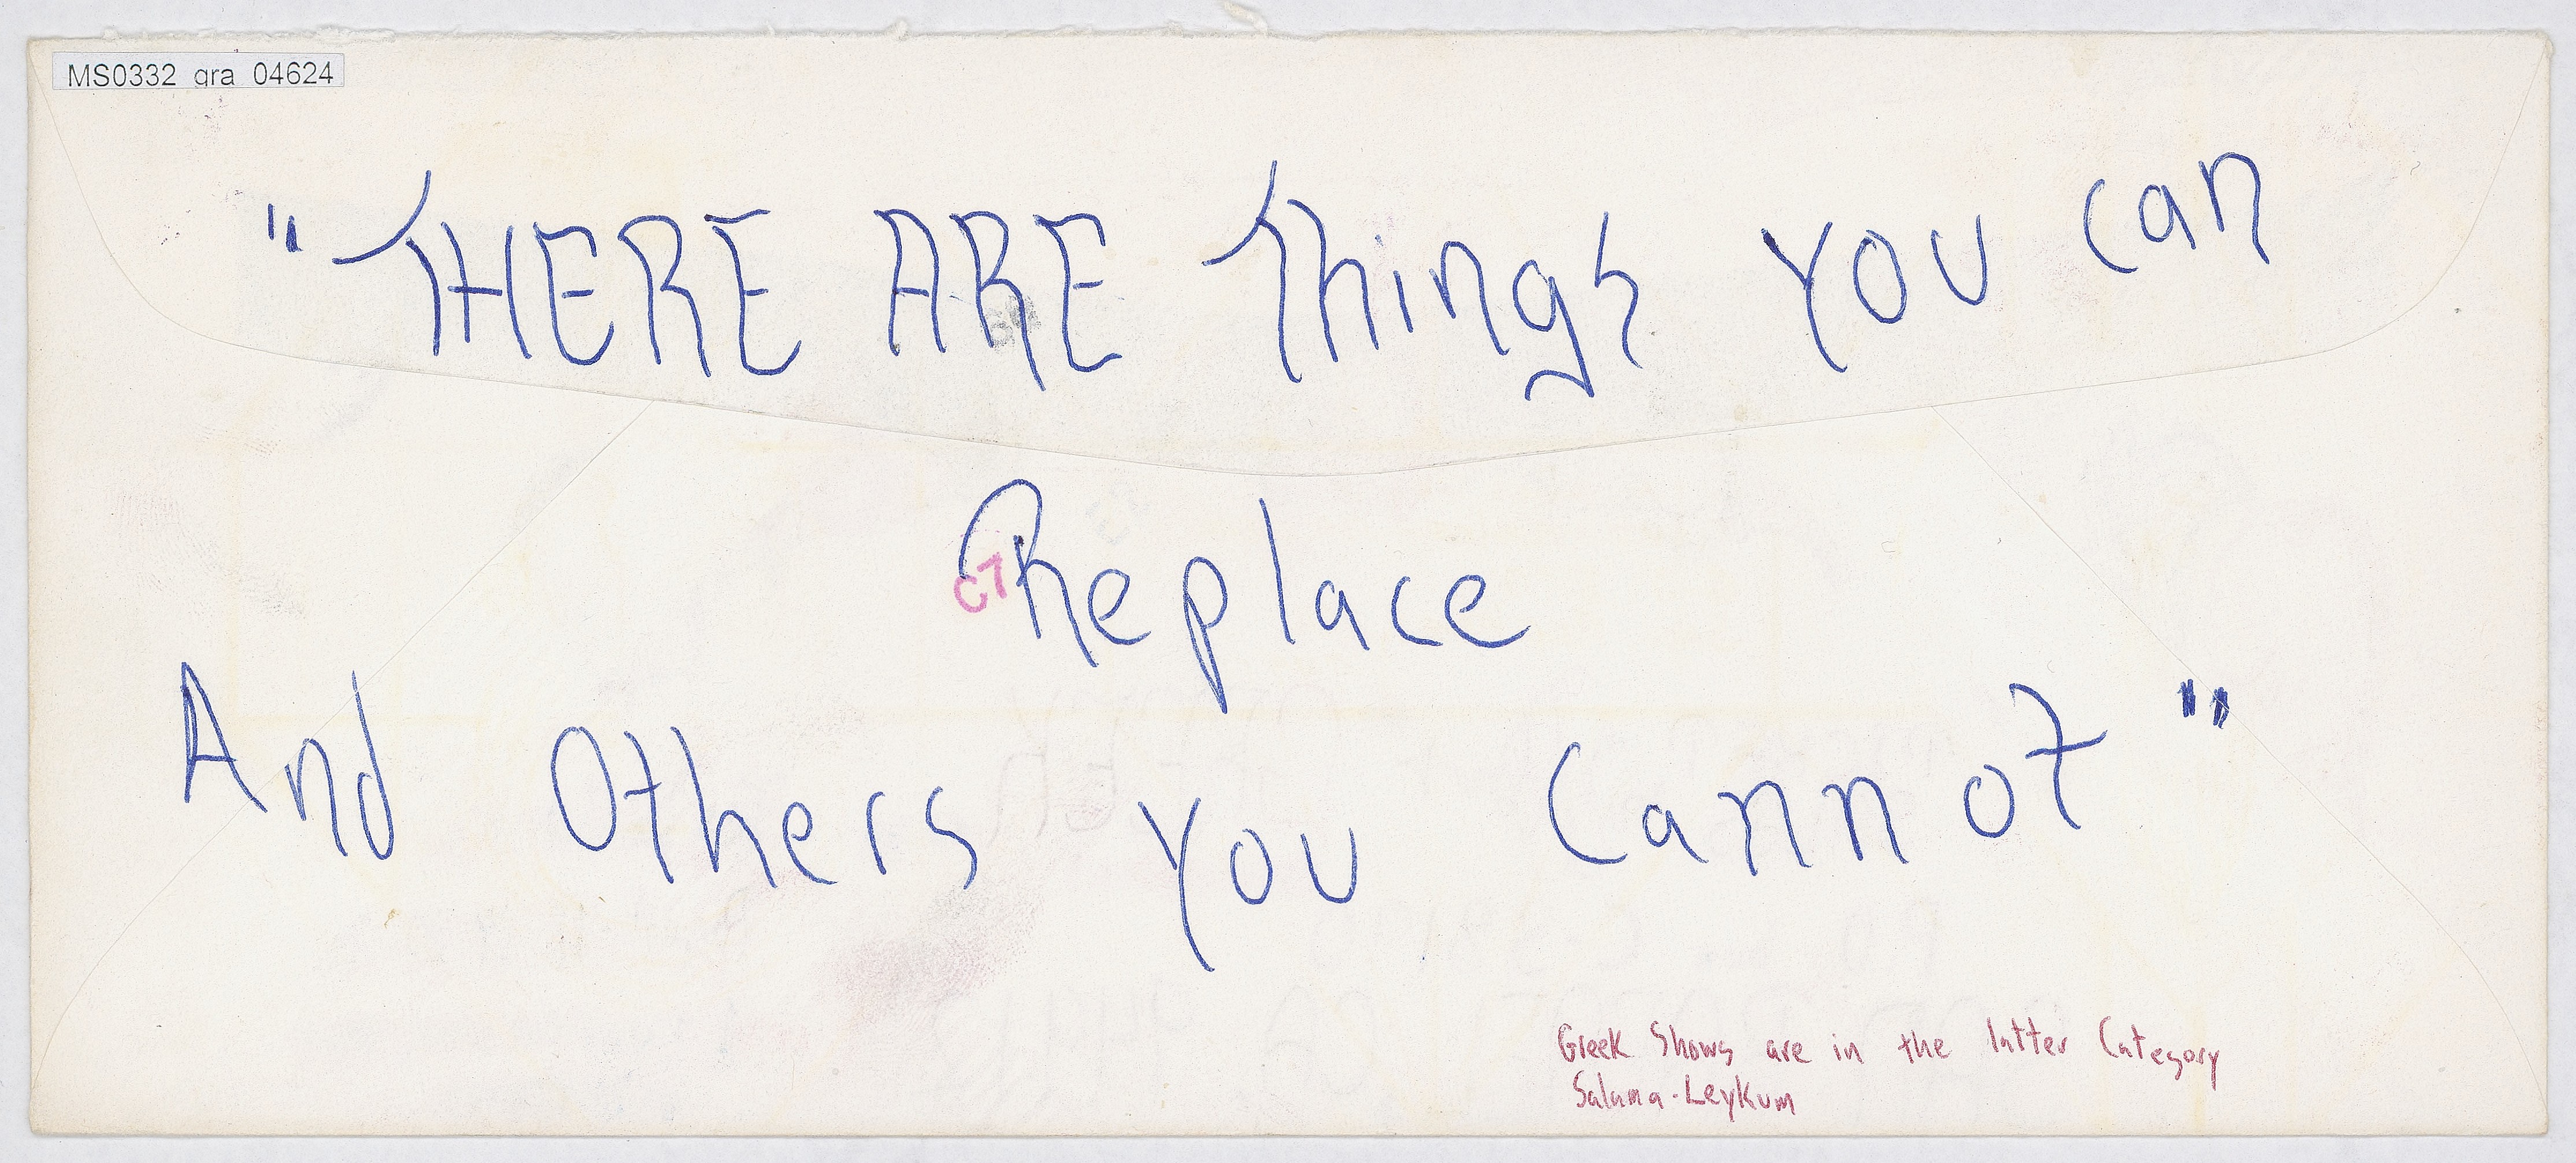 MS0332_gra_04624
"THERE ARE Things You can
Replace
C7
And Others You Cannot"
Greek Shows are in the latter Category
Salama-Leykum